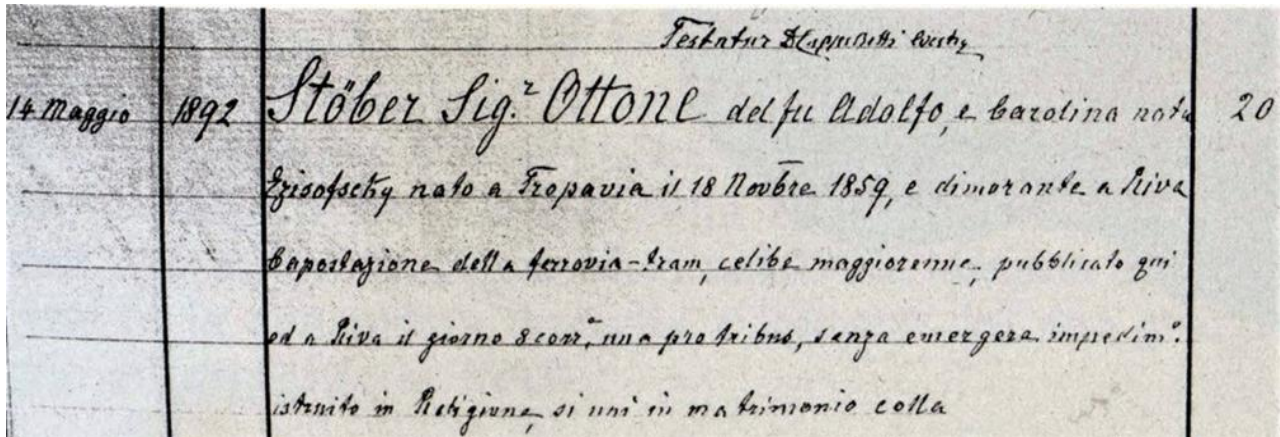 Testatur
14 Maggio 1892 Stöber Sig.r Ottone del fu Adolfo, e Carolina nata 20
nato a Tropavia il 18 Novbre 1859, e dimorante a Riva
Capostazione della ferrovia-tram, celibe maggiorenne, pubblicato qui
ed a Riva il giorno 8 corr.e, una pro tribus, senza emergere impedim.o
istruito in Religione, si unì in matrimonio colla